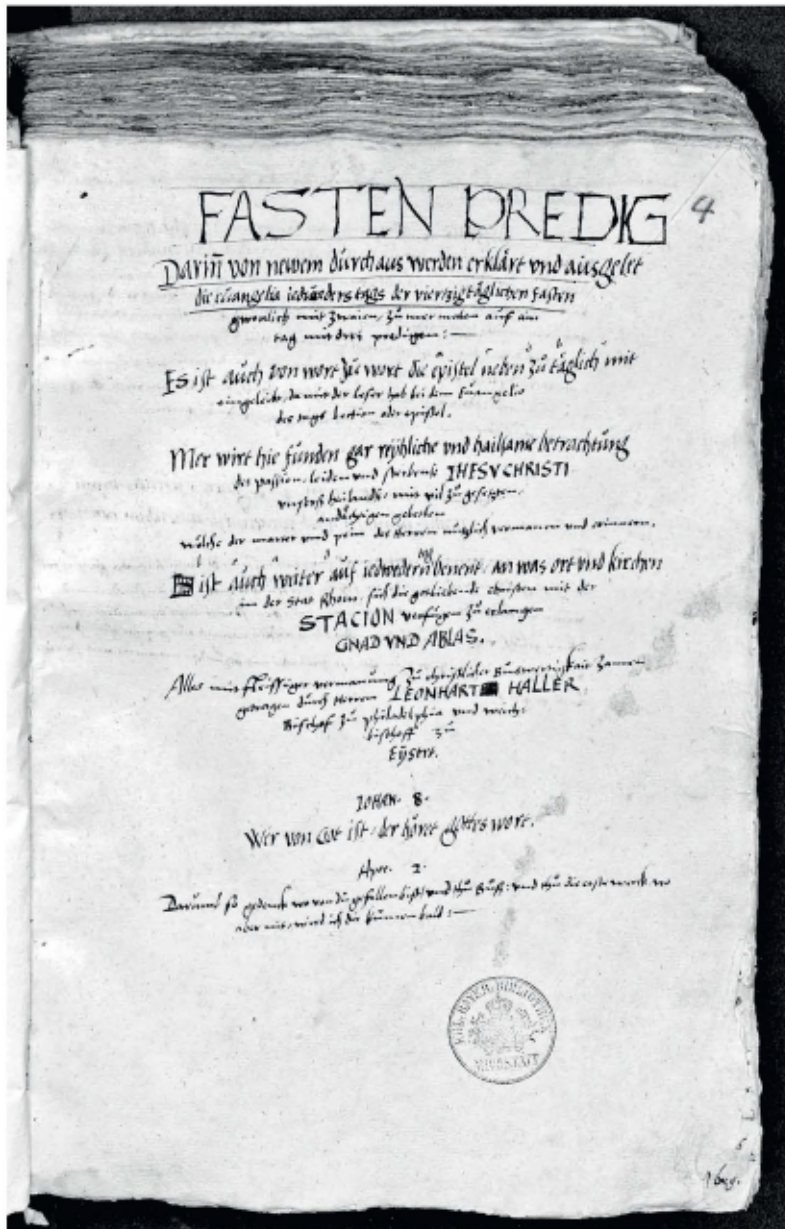 FASTEN PREDIG 4
Dariñ von newem durchaus werden erklärt vnd ausgelet
die euangelia iedwäders tags der vierzigtäglichen Fasten
gwonlich mit zwaien, zu mer malen auf ain
tag mit drei predigen:—
Es ist auch von wort zu wort die epistel neben zu täglich mit
eingeleibt, da mit der leser hab bei dem Euangelio
des tags lection oder epistel.
Mer wirt hie funden gar reichliche vnd hailsame betrachtung
des passion, leiden vnd sterbens IHESV CHRISTI
vnsers hailands, mit vil zu gesetzten,
andächtigen gebetten
wölche der marter vnd pein des Herren nutzlich vermanen vnd erinnern.
Es ist auch weiter auf iedwedern tag benent, an was ort vnd kirchen
in der stat Rhom, sich die gotliebende christen mit der
STACION verfügen zu erlangen
GNAD VND ABLAS.
Alles mit fleissiger vermanung zu christlicher Buswertigkait zamen
getragen durch Herren LEONHART HALLER
Bischof zu philadelphia vnd weich-
bischoff zu
Eystet.
IOHAN. 8.
Wer von Got ist, der höret gottes wort.
Apoc. 2.
Darumb so gedenck wo von du gefallen bist, vnd thu Buss: vnd thu die erste werck wo
aber nit, wird ich dir kummen bald:—
KGL. BAYER. BIBLIOTHEK
EICHSTÄTT